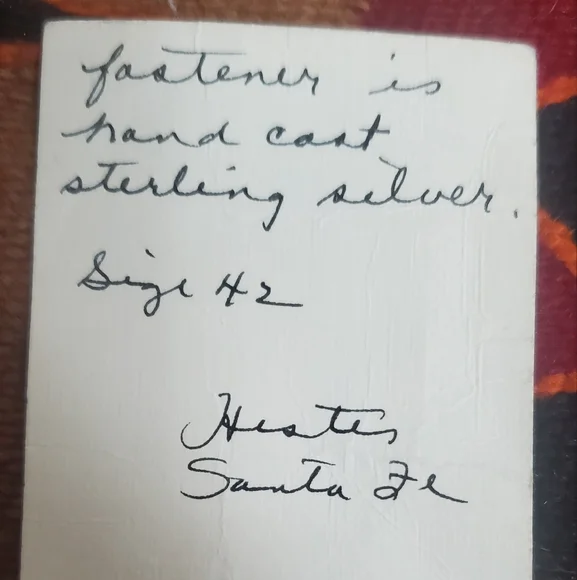 fastener is
hand cast
sterling silver.
Size 42
Hester
Santa Fe